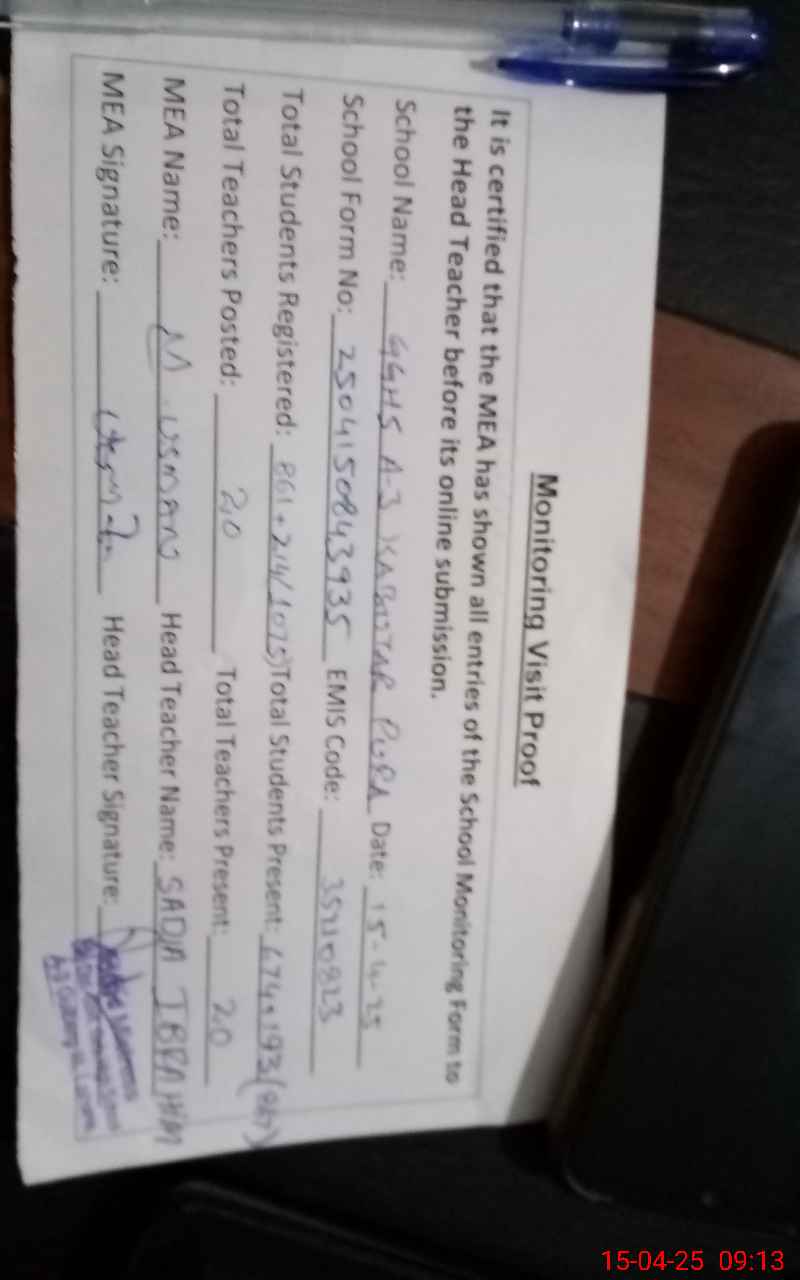 Monitoring Visit Proof
It is certified that the MEA has shown all entries of the School Monitoring Form to
the Head Teacher before its online submission.
School Name: GGHS A-3 Date: 15-4-25
School Form No: 2504150843935 EMIS Code:
Total Students Registered: 861+214/1075) Total Students Present: 674+193(867)
Total Teachers Posted: 20 Total Teachers Present: 20
MEA Name: M. USMAN Head Teacher Name: SADIA IBRAHIM
MEA Signature: Head Teacher Signature:
15-04-25 09:13